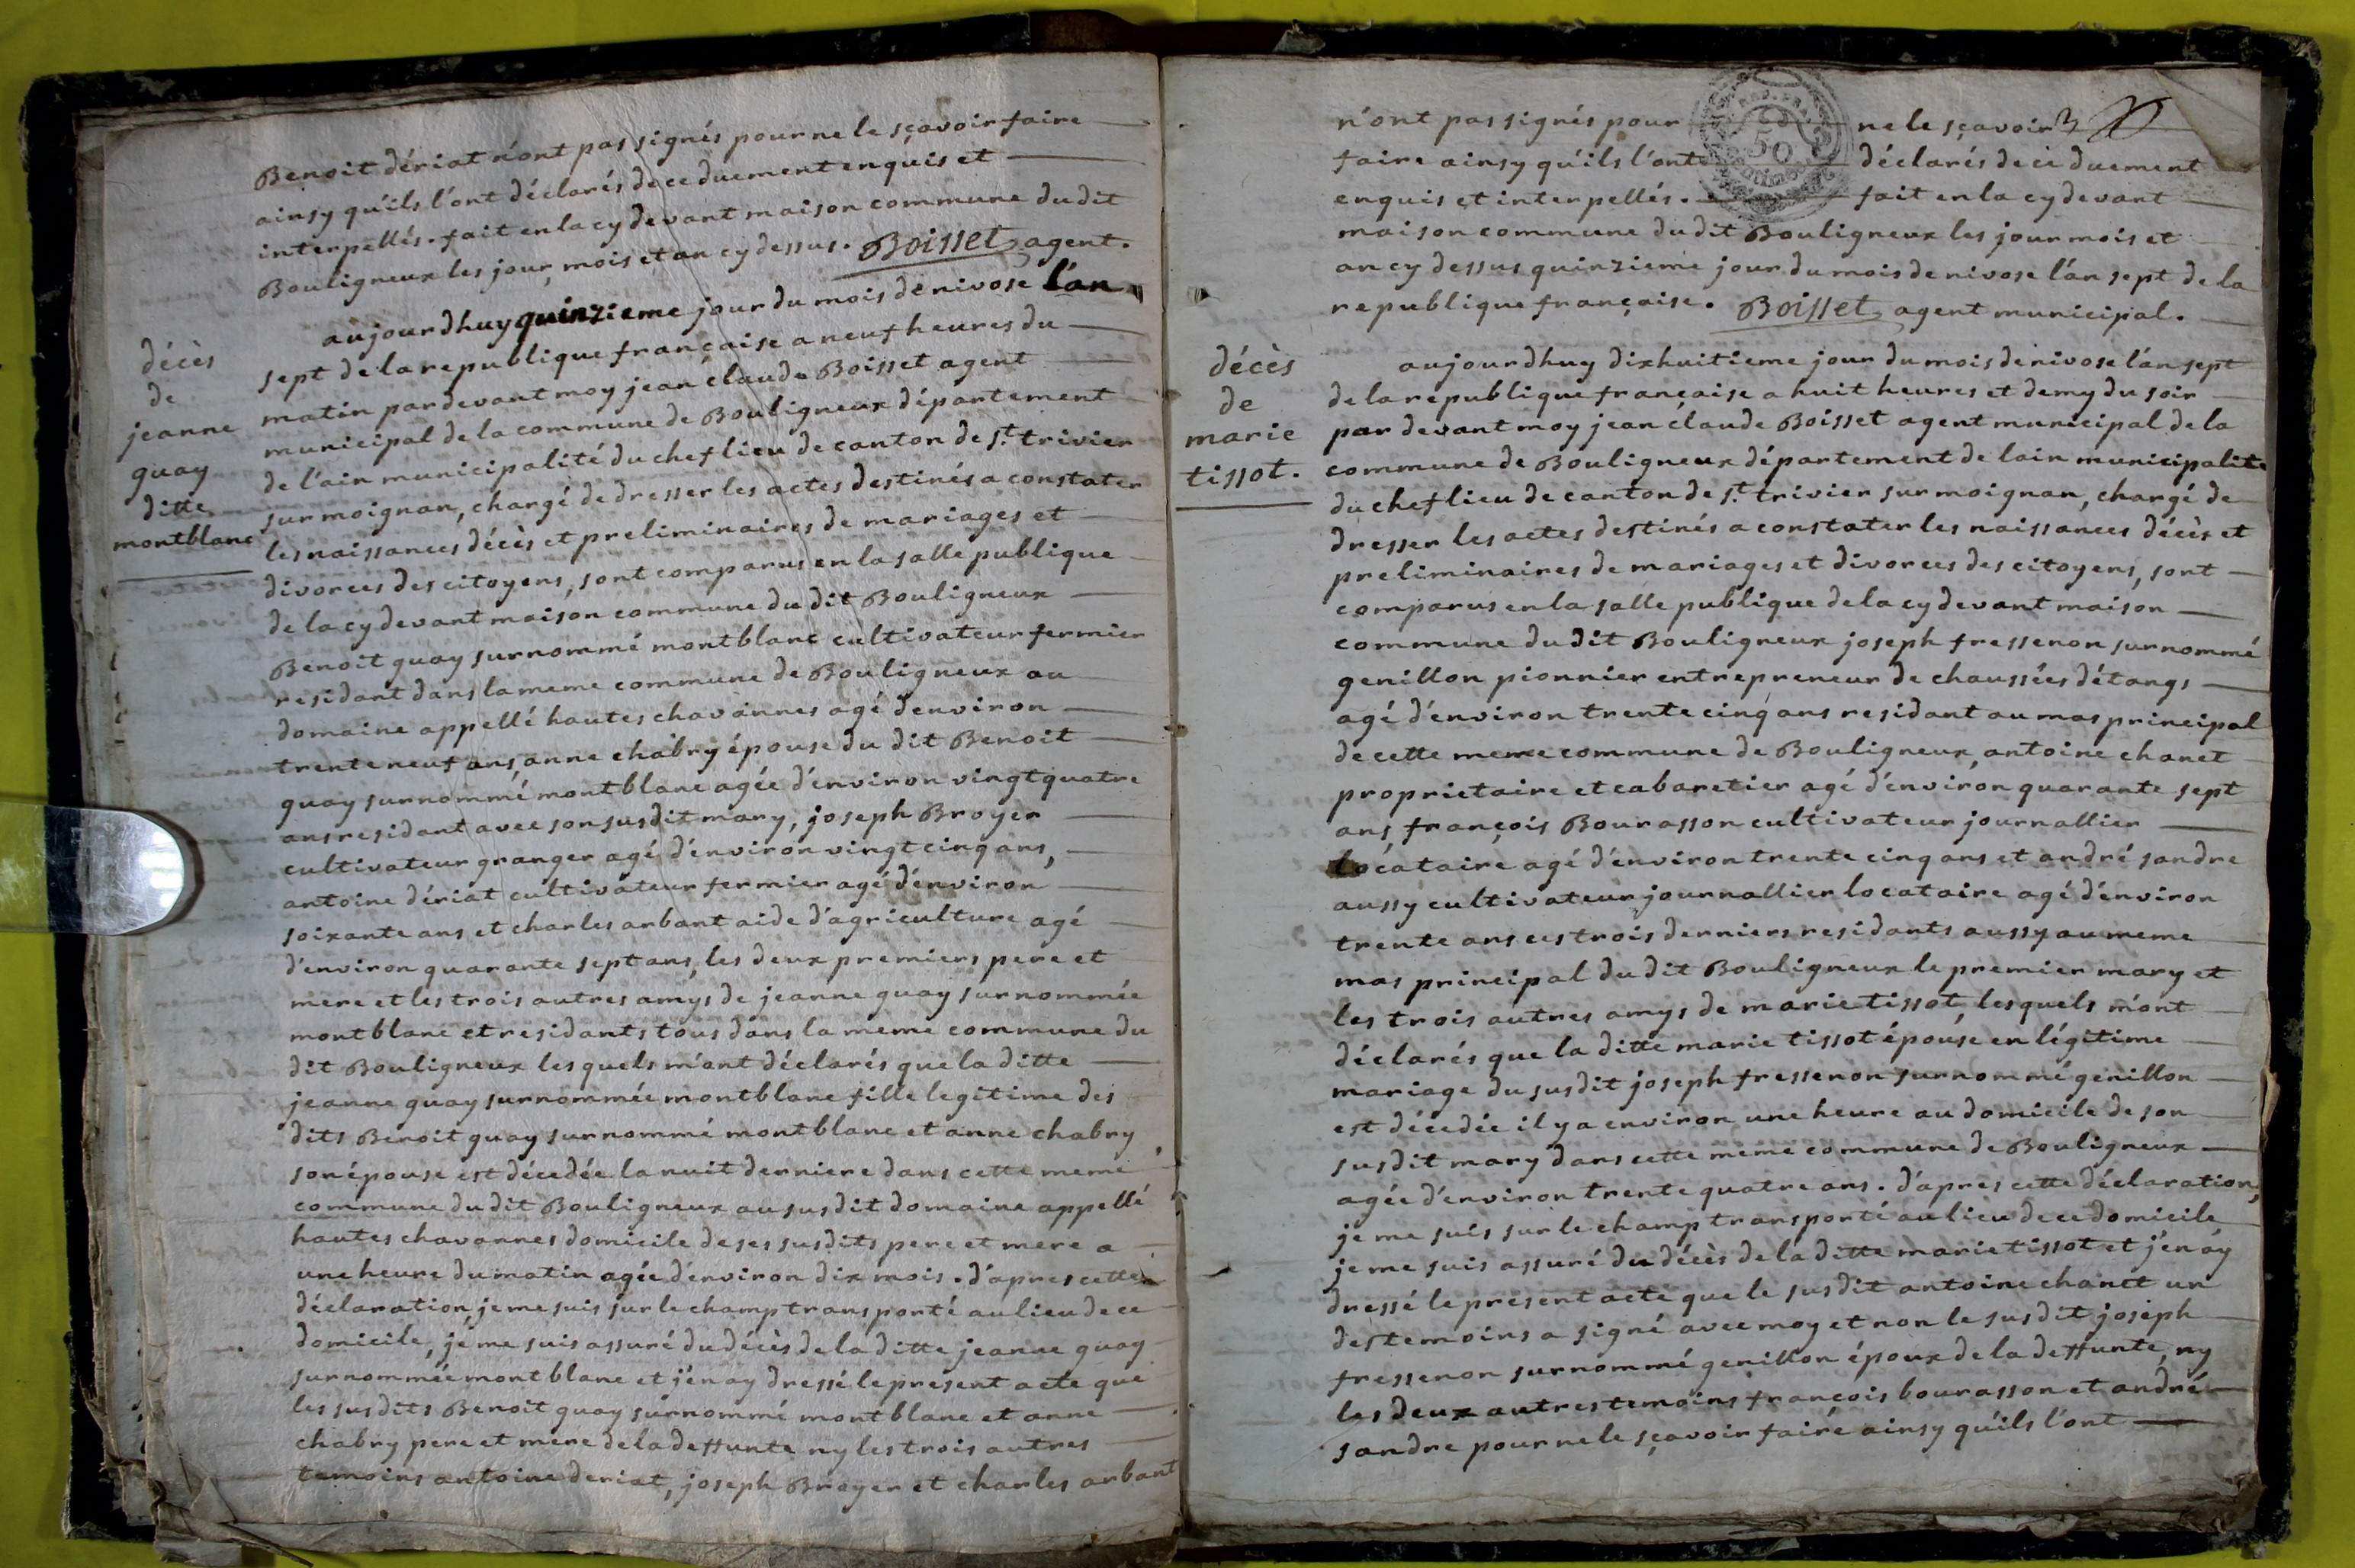 Benoit dériat n'ont pas signés pour ne le sçavoir faire
ainsy qu'ils l'ont déclarés de ce duement enquis et
interpellés. fait en la cy devant maison commune du dit
Bouligneux les jour, mois et an cy dessus. Boisset agent.
décès
de
jeanne
quay
ditte
montblanc
aujourdhuy quinzieme jour du mois de nivose l'an
sept de la republique française a neuf heures du
matin pardevant moy jean claude Boisset agent
municipal de la commune de Bouligneux département
de l'ain municipalité du chef lieu de canton de st. trivier
sur moignan, chargé de dresser les actes destinés a constater
les naissances décès et preliminaires de mariages et
divorces des citoyens, sont comparus en la salle publique
de la cy devant maison commune du dit Bouligneux
Benoit quay surnommé montblanc cultivateur fermier
residant dans la meme commune de Bouligneux au
domaine appellé hautes chavannes agé d'environ
trente neuf ans, anne chabry épouse du dit Benoit
quay surnommé montblanc agée d'environ vingt quatre
ans residant avec son susdit mary, joseph Broyer
cultivateur granger agé d'environ vingt cinq ans,
antoine dériat cultivateur fermier agé d'environ
soixante ans et charles arbant aide d'agriculture agé
d'environ quarante sept ans, les deux premiers pere et
mere et les trois autres amys de jeanne quay surnommée
montblanc et residants tous dans la meme commune du
dit Bouligneux les quels m'ont déclarés que la ditte
jeanne quay surnommée montblanc fille legitime des
dits Benoit quay surnommé montblanc et anne chabry
son épouse est décedée la nuit derniere dans cette meme
commune du dit Bouligneux au susdit domaine appellé
hautes chavannes domicile de ses susdits pere et mere a
une heure du matin agée d'environ dix mois. d'apres cette
déclaration, je me suis sur le champ transporté au lieu de ce
domicile, je me suis assuré du décès de la ditte jeanne quay
surnommée montblanc et j'en ay dressé le present acte que
les susdits Benoit quay surnommé montblanc et anne
chabry pere et mere de la deffunte ny les trois autres
temoins antoine deriat, joseph Broyer et charles arbant
n'ont pas signés pour ne le sçavoir
faire ainsy qu'ils l'ont déclarés de ce duement
enquis et interpellés. fait en la cy devant
maison commune du dit Bouligneux les jour mois et
an cy dessus quinzieme jour du mois de nivose l'an sept de la
republique française. Boisset agent municipal.
décès
de
marie
tissot.
aujourdhuy dixhuitieme jour du mois de nivose l'an sept
de la republique française a huit heures et demy du soir
par devant moy jean claude Boisset agent municipal de la
commune de Bouligneux département de lain municipalite
du chef lieu de canton de st. trivier sur moignan, chargé de
dresser les actes destinés a constater les naissances décès et
preliminaires de mariages et divorces des citoyens, sont
comparus en la salle publique de la cy devant maison
commune du dit Bouligneux joseph fressenon surnommé
genillon pionnier entrepreneur de chaussées d'étangs
agé d'environ trente cinq ans residant au mas principal
de cette meme commune de Bouligneux, antoine chanet
proprietaire et cabaretier agé d'environ quarante sept
ans, françois Bourasson cultivateur journallier
locataire agé d'environ trente cinq ans et andré sandre
aussy cultivateur journallier locataire agé d'environ
trente ans ces trois derniers residants aussy au meme
mas principal du dit Bouligneux le premier mary et
les trois autres amys de marie tissot, lesquels m'ont
déclarés que la ditte marie tissot épouse en légitime
mariage du susdit joseph fressenon surnommé genillon
est décedée il y a environ une heure au domicile de son
susdit mary dans cette meme commune de Bouligneux
agée d'environ trente quatre ans. d'apres cette déclaration,
je me suis sur le champ transporté au lieu de ce domicile
je me suis assuré du décès de la ditte marie tissot et j'en ay
dressé le present acte que le susdit antoine chanet un
des temoins a signé avec moy et non le susdit joseph
fressenon surnommé genillon époux de la deffunte, ny
les deux autres temoins françois bourasson et andré
sandre pour ne le sçavoir faire ainsy qu'ils l'ont